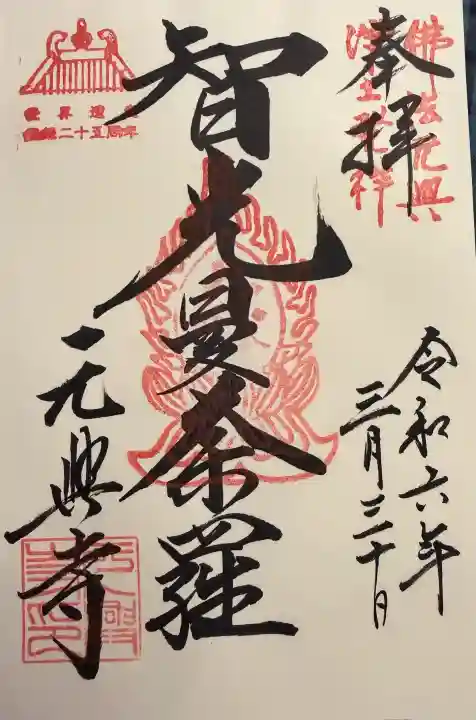 佛法元興
浄土発祥
奉拝
令和六年
三月三十日
智光曼荼羅
世界遺産
登録二十五周年
元興寺